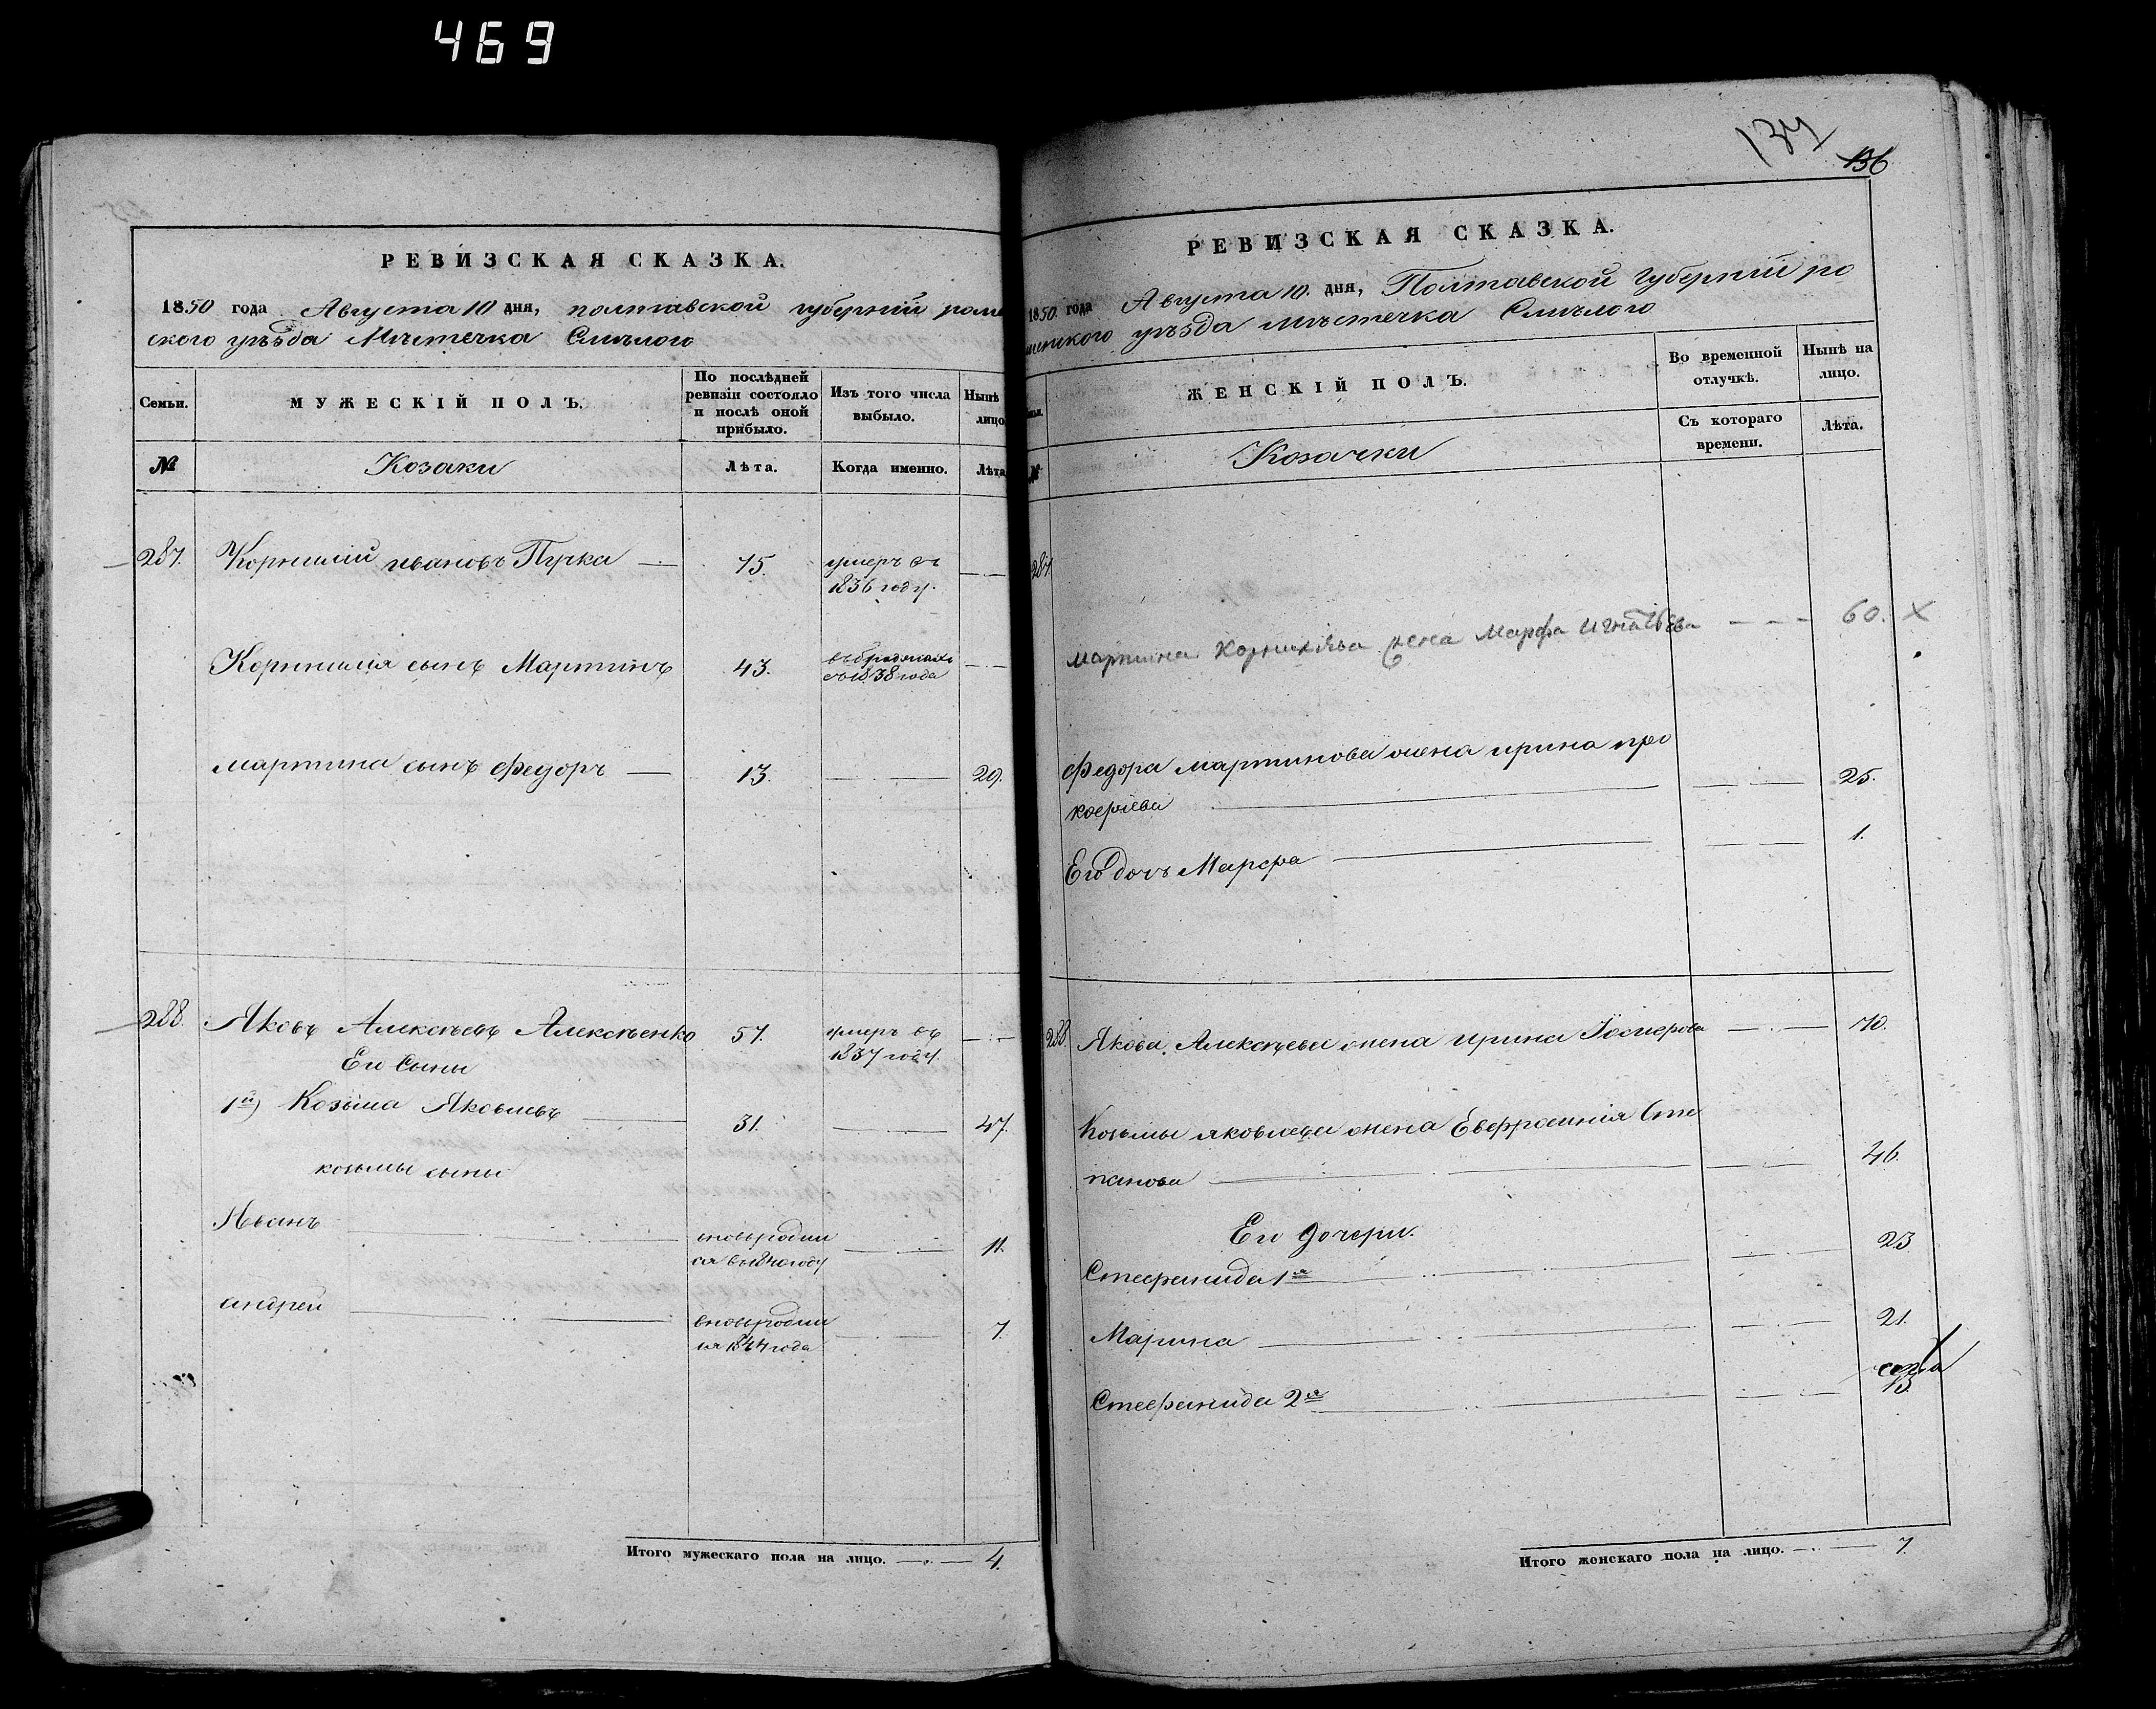 469
РЕВИЗСКАЯ СКАЗКА.
1850 года Августа 10 дня, полтавской губерніи роме
ского уѣзда Мѣстечка Смѣлого
Семьи.
МУЖЕСКІЙ ПОЛЪ.
По послѣдней ревизіи состояло и послѣ оной прибыло.
Изъ того числа выбыло.
Нынѣ лицо
№
Козаки
Лѣта.
Когда именно.
Лѣта
287. Корнилий ивановъ Пучка 75. умеръ въ — . —
1836 году.
Корнилия сынъ Мартинъ 43. въ бродягахъ — . —
съ 1838 года
мартина сынъ Федоръ — 13. — . — 29.
288. Яковъ Алексѣевъ Алексѣенко 57. умеръ въ — . —
Его Сыны 1837 году.
1й) Козьма Яковлевъ 31. — . — 47.
козьмы сыны
Иванъ вновьродил — . — 11.
ся въ 1840 году
андрей вновьродил — . — 7.
ся 1844 года
Итого мужескаго пола на лицо. — . — 4.
137
136
РЕВИЗСКАЯ СКАЗКА.
1850 года Августа 10. дня, Полтавской Губерніи ро
менского уѣзда мѣстечка Смѣлого
ЖЕНСКІЙ ПОЛЪ.
Во временной отлучкѣ.
Нынѣ на лицо.
№
Козачки
Съ котораго времени.
Лѣта.
287.
мартина Корнилѣва жена Марфа Игнатьева — — — 60. х
Федора мартинова жена ирина про
кофіева — . — 25.
Его дочь Марфа — . — 1.
288. Якова Алексѣева жена ирина — . — 70.
Козьмы яковлева жена Евфросинія Сте
панова — . — 46.
Его дочери.
Стефанида 1я — . — 23
Марина — . — 21.
Стефанида 2я — . — 13.
Итого женскаго пола на лицо. — . — 7.